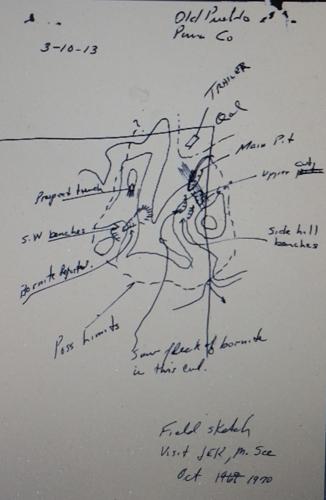 Old Pueblo
Pima Co
3-10-13
TRAILER
Qal
?
Main Pit
upper cut
Prospect trench
S.W benches
Side hill
benches
Bornite Reported.
Poss Limits
Saw fleck of bornite
in this cut.
Field sketch
Visit JEK, M. See
Oct 1970